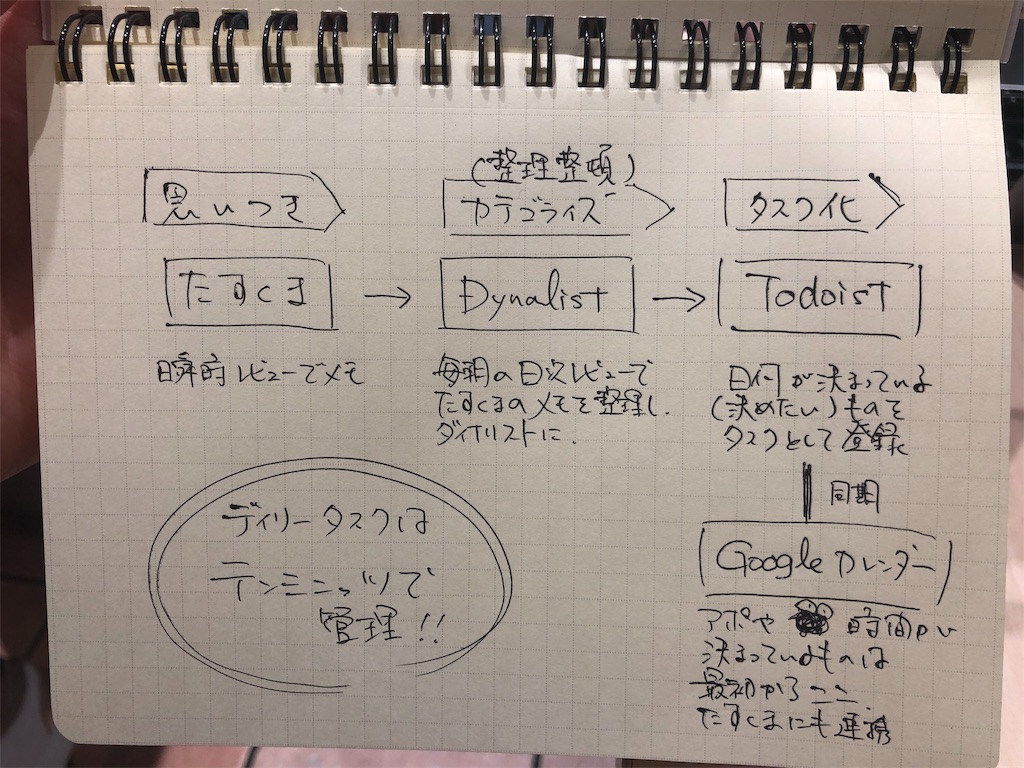 思いつき
(整理整頓)
カテゴライズ
タスク化
たすくま
Dynalist
Todoist
瞬時レビューでメモ
毎朝の日次レビューで
たすくまのメモを整理し
ダイナリストに.
日付が決まっている
(決めたい)ものを
タスクとして登録
同期
Google カレンダー
アポや 時間が
決まっているものは
最初からここ.
たすくまにも連携
デイリータスクは
テンミニッツで
管理!!